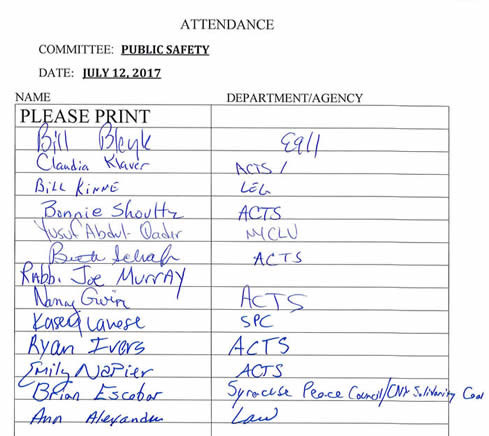 ATTENDANCE
COMMITTEE: PUBLIC SAFETY
DATE: JULY 12, 2017
NAME DEPARTMENT/AGENCY
PLEASE PRINT
Bill E911
Claudia Klaver ACTS /
Bill Kinne LEG
Bonnie Shoultz ACTS
Yusuf Abdul-Qader NYCLU
ACTS
Rabbi Joe Murray
Nancy Gwin ACTS
SPC
Ryan Ivers ACTS
Emily NaPier ACTS
Brian Escobar Syracuse Peace Council/CNY Solidarity Coal
Ann Alexander Law